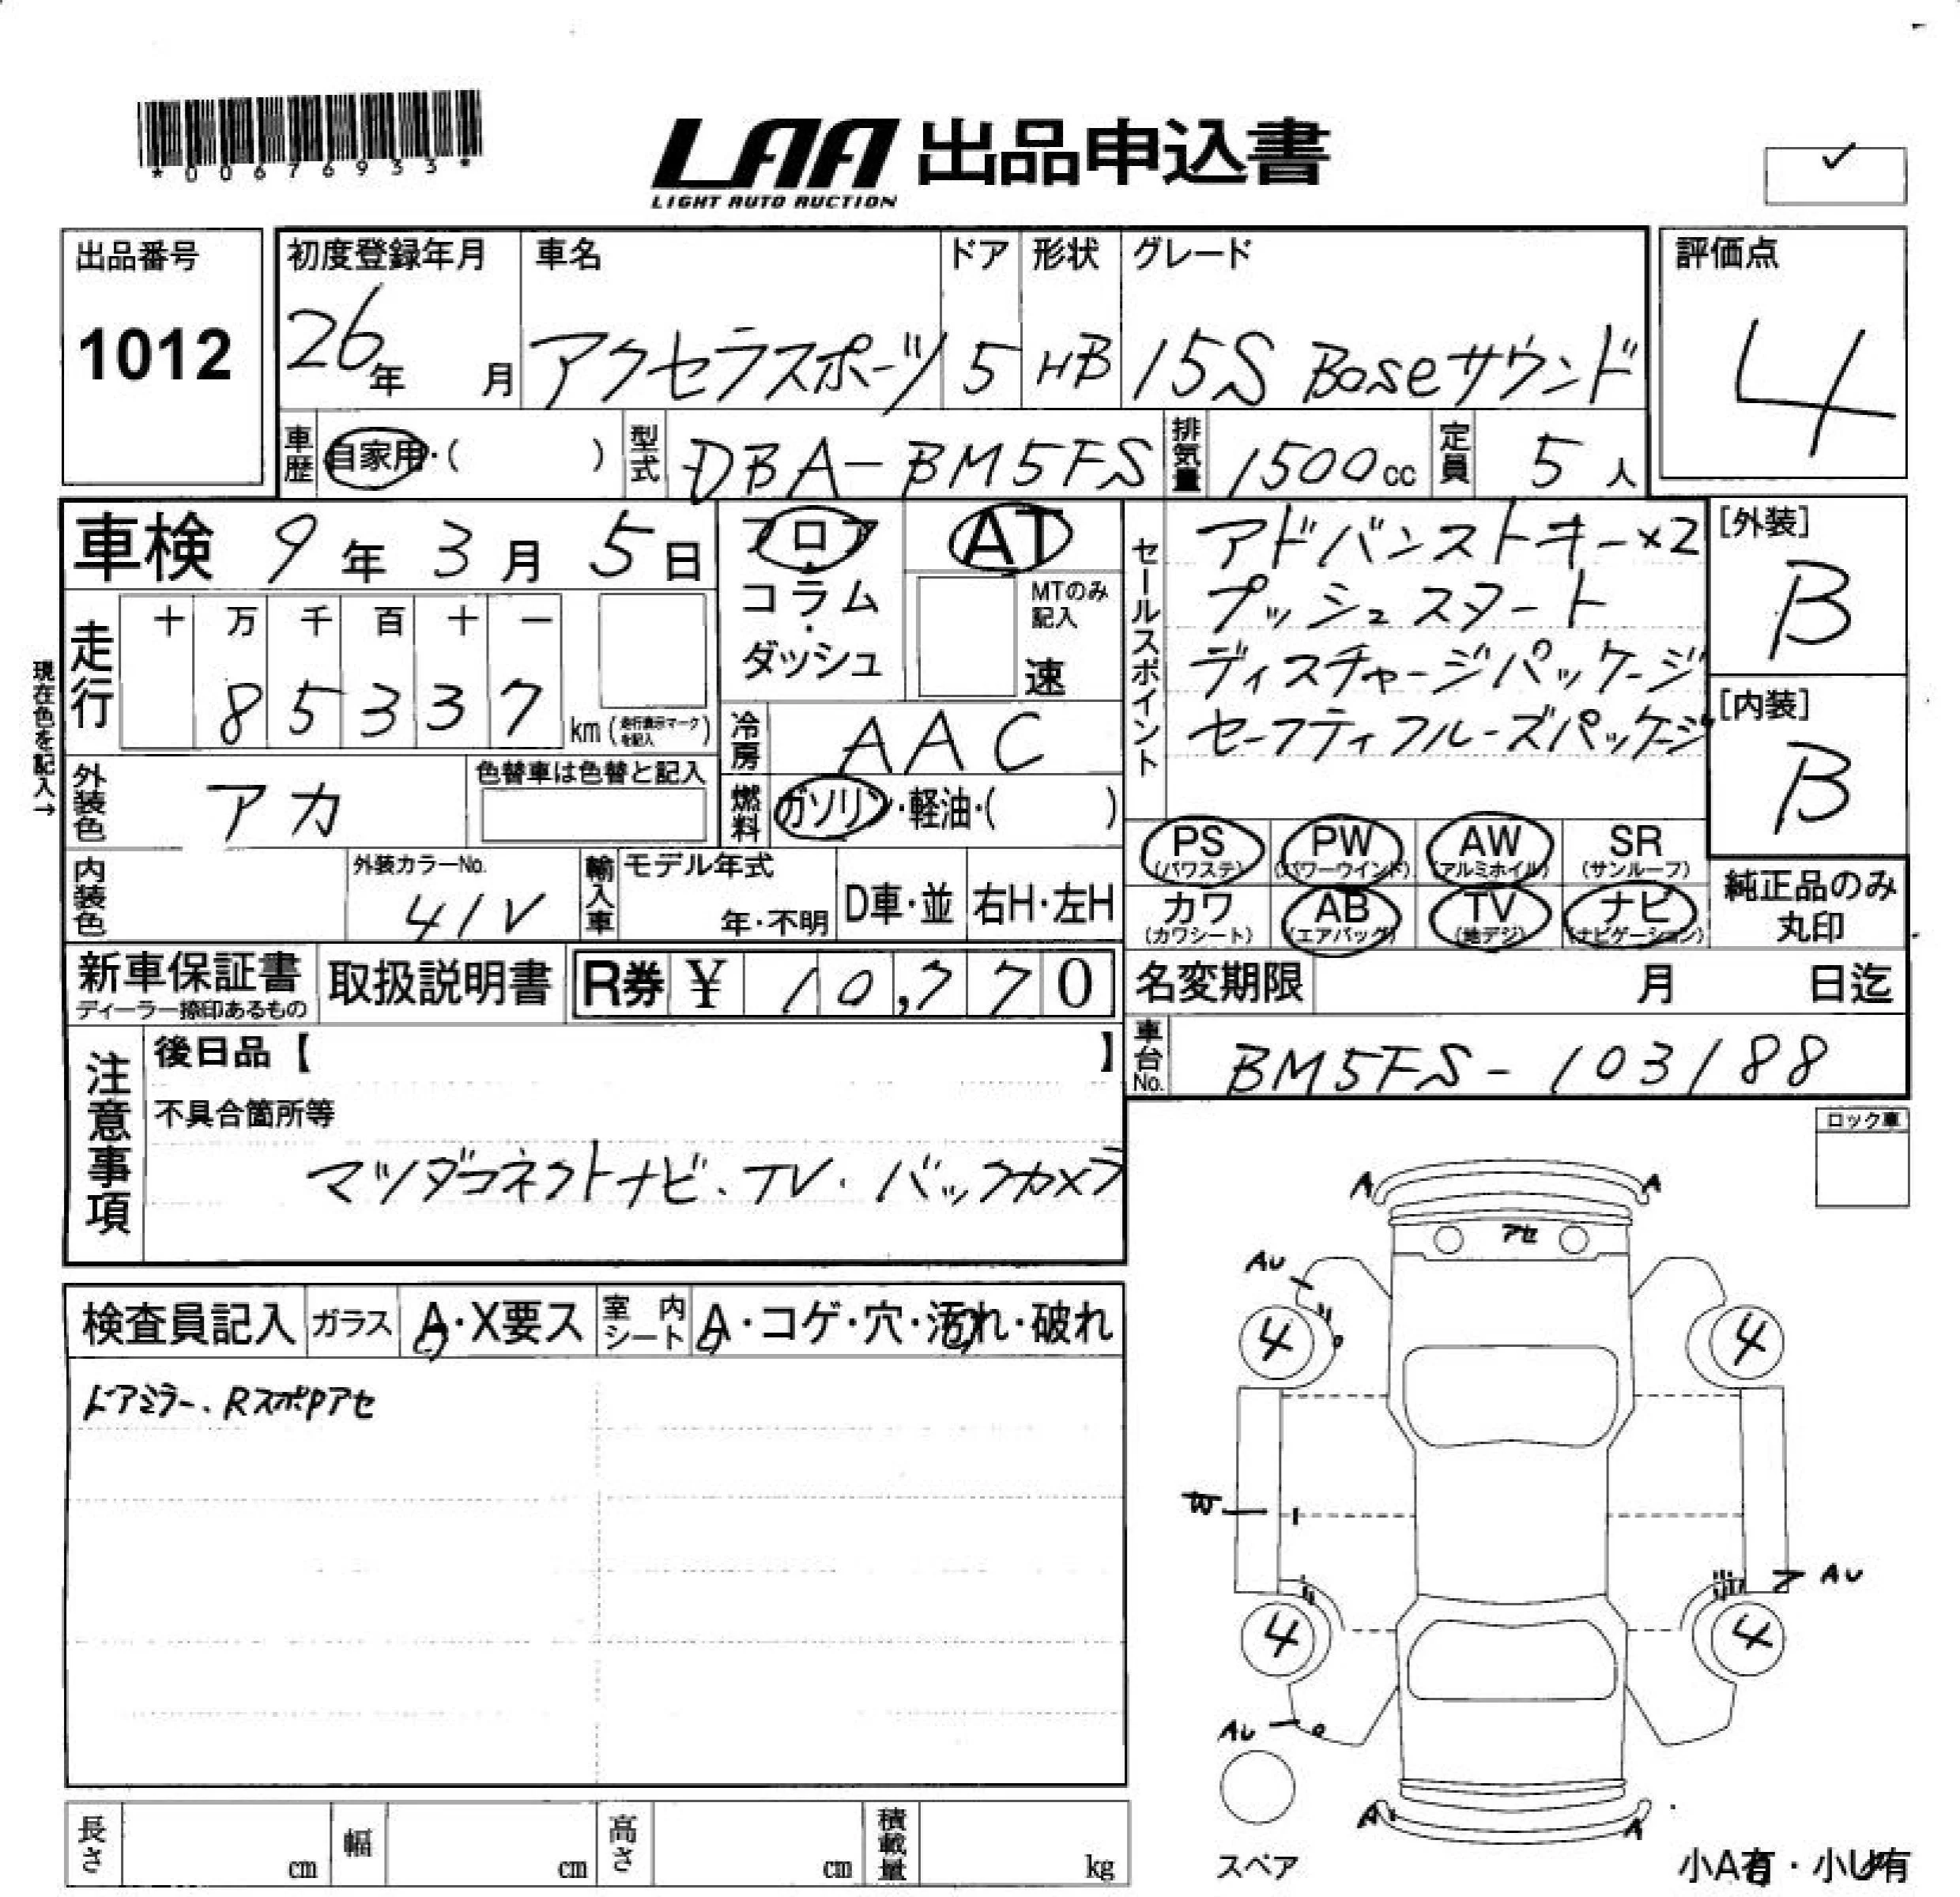 *00676933*
LAA 出品申込書
LIGHT AUTO AUCTION
✓
出品番号
1012
初度登録年月
26年 月
車名
アクセラスポーツ
ドア
5
形状
HB
グレード
15S Boseサウンド
評価点
4
車歴 自家用・( )
型式 DBA-BM5FS
排気量 1500cc
定員 5人
車検 9年3月5日
現在色を記入→
走行
十 万 千 百 十 一
8 5 3 3 7
km(走行表示マークを記入)
フロア
コラム
ダッシュ
AT
MTのみ記入
速
冷房 AAC
燃料 ガソリン・軽油・( )
外装色 アカ
色替車は色替と記入
内装色
外装カラーNo.
41V
輸入車
モデル年式
年・不明
D車・並
右H・左H
セールスポイント
アドバンストキー×2
プッシュスタート
ディスチャージパッケージ
セーフティクルーズパッケージ
[外装]
B
[内装]
B
PS (パワステ)
PW (パワーウインド)
AW (アルミホイル)
SR (サンルーフ)
カワ (カワシート)
AB (エアバッグ)
TV (地デジ)
ナビ (ナビゲーション)
純正品のみ
丸印
新車保証書
ディーラー捺印あるもの
取扱説明書
R券 ¥ 10,770
名変期限 月 日迄
車台No. BM5FS-103188
注意事項
後日品【 】
不具合箇所等
マツダコネクトナビ、TV・バックカメラ
ロック車
検査員記入
ガラス A・X要ス
室内シート A・コゲ・穴・汚れ・破れ
ドアミラー、RスポPアセ
A A
アセ
AU
4 4
W
AU
4 4
AU
A A
スペア
小A有・小U有
長さ cm
幅 cm
高さ cm
積載量 kg